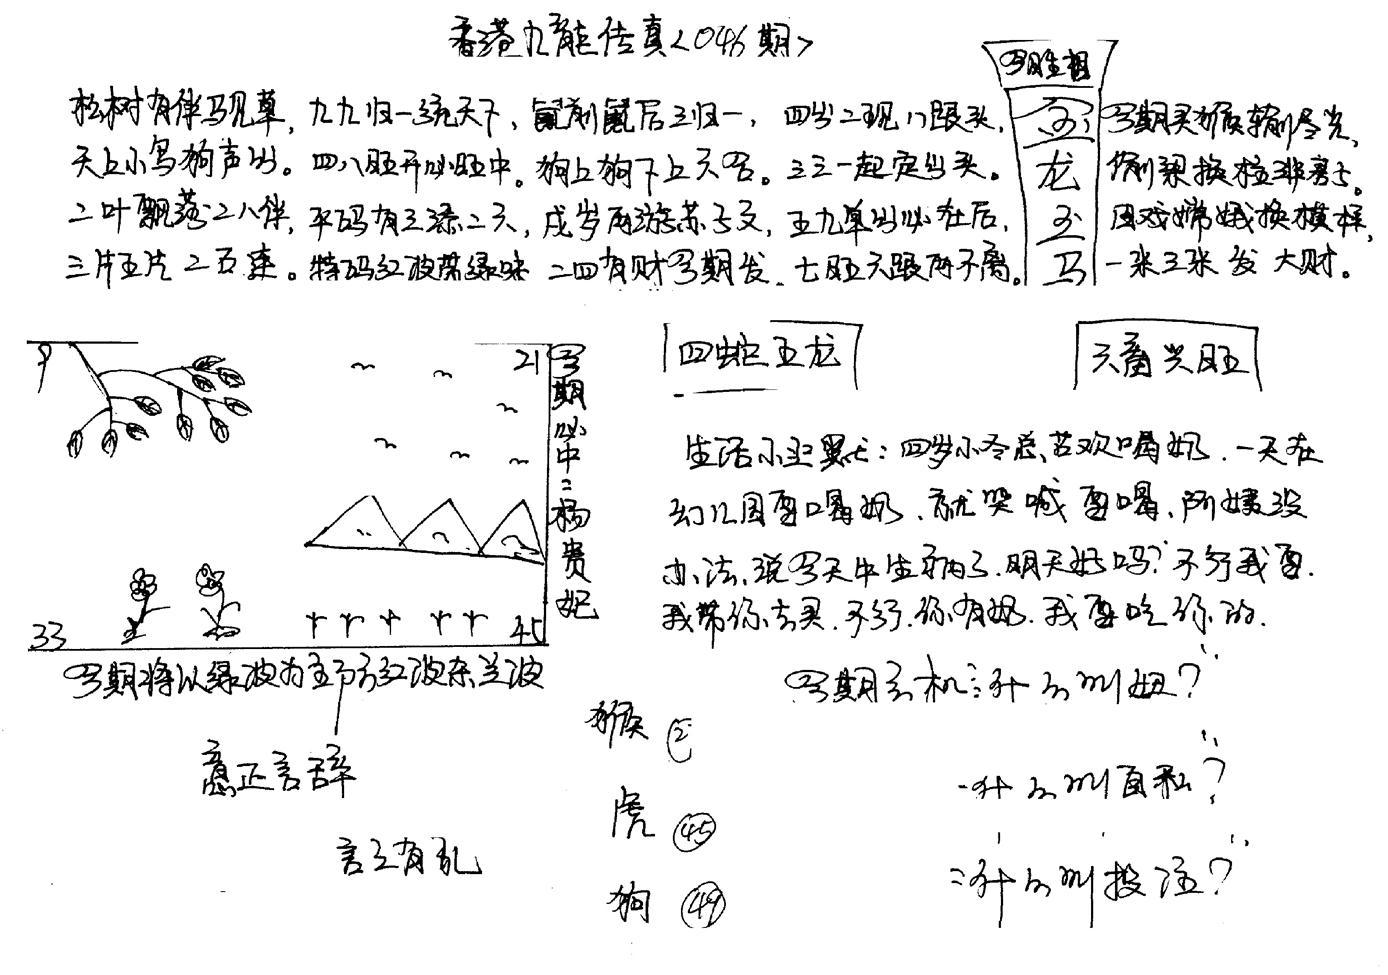 香港九龍传真<046期>
今期生相
松树有伴马见草，九九归一统天下，鼠前鼠后三归一，四岁二现八跟头，
天上小鸟狗声出。四八旺开必旺中。狗上狗下上六否。三三一起定出头。
二叶飘落二八伴，平码有三添二六，戌岁再游苏子文，五九单出必在后，
三片五片二石来。特码红波带绿味 二四有财今期发，七旺六跟两不离。
龙
马
今期买猴输尽光，
偷梁换柱非易与。
因戏嫦娥换模样，
一张三张发大财。
9
21
33
45
今期必中：杨贵妃
四蛇五龙
六畜兴旺
生活小 ：四岁小冷总喜欢喝奶，一天在
幼儿园要喝奶，就哭喊要喝，阿姨没
办法，说今天牛生病了，明天好吗？不行我要，
我带你去买，不行，你有奶，我要吃你的，
今期将以绿波为主防红波杀兰波
今期玄机：什么叫妞？
什么叫自私？
什么叫投注？
意正言辞
言之有乱
猴 ②
虎 ㊺
狗 ㊾